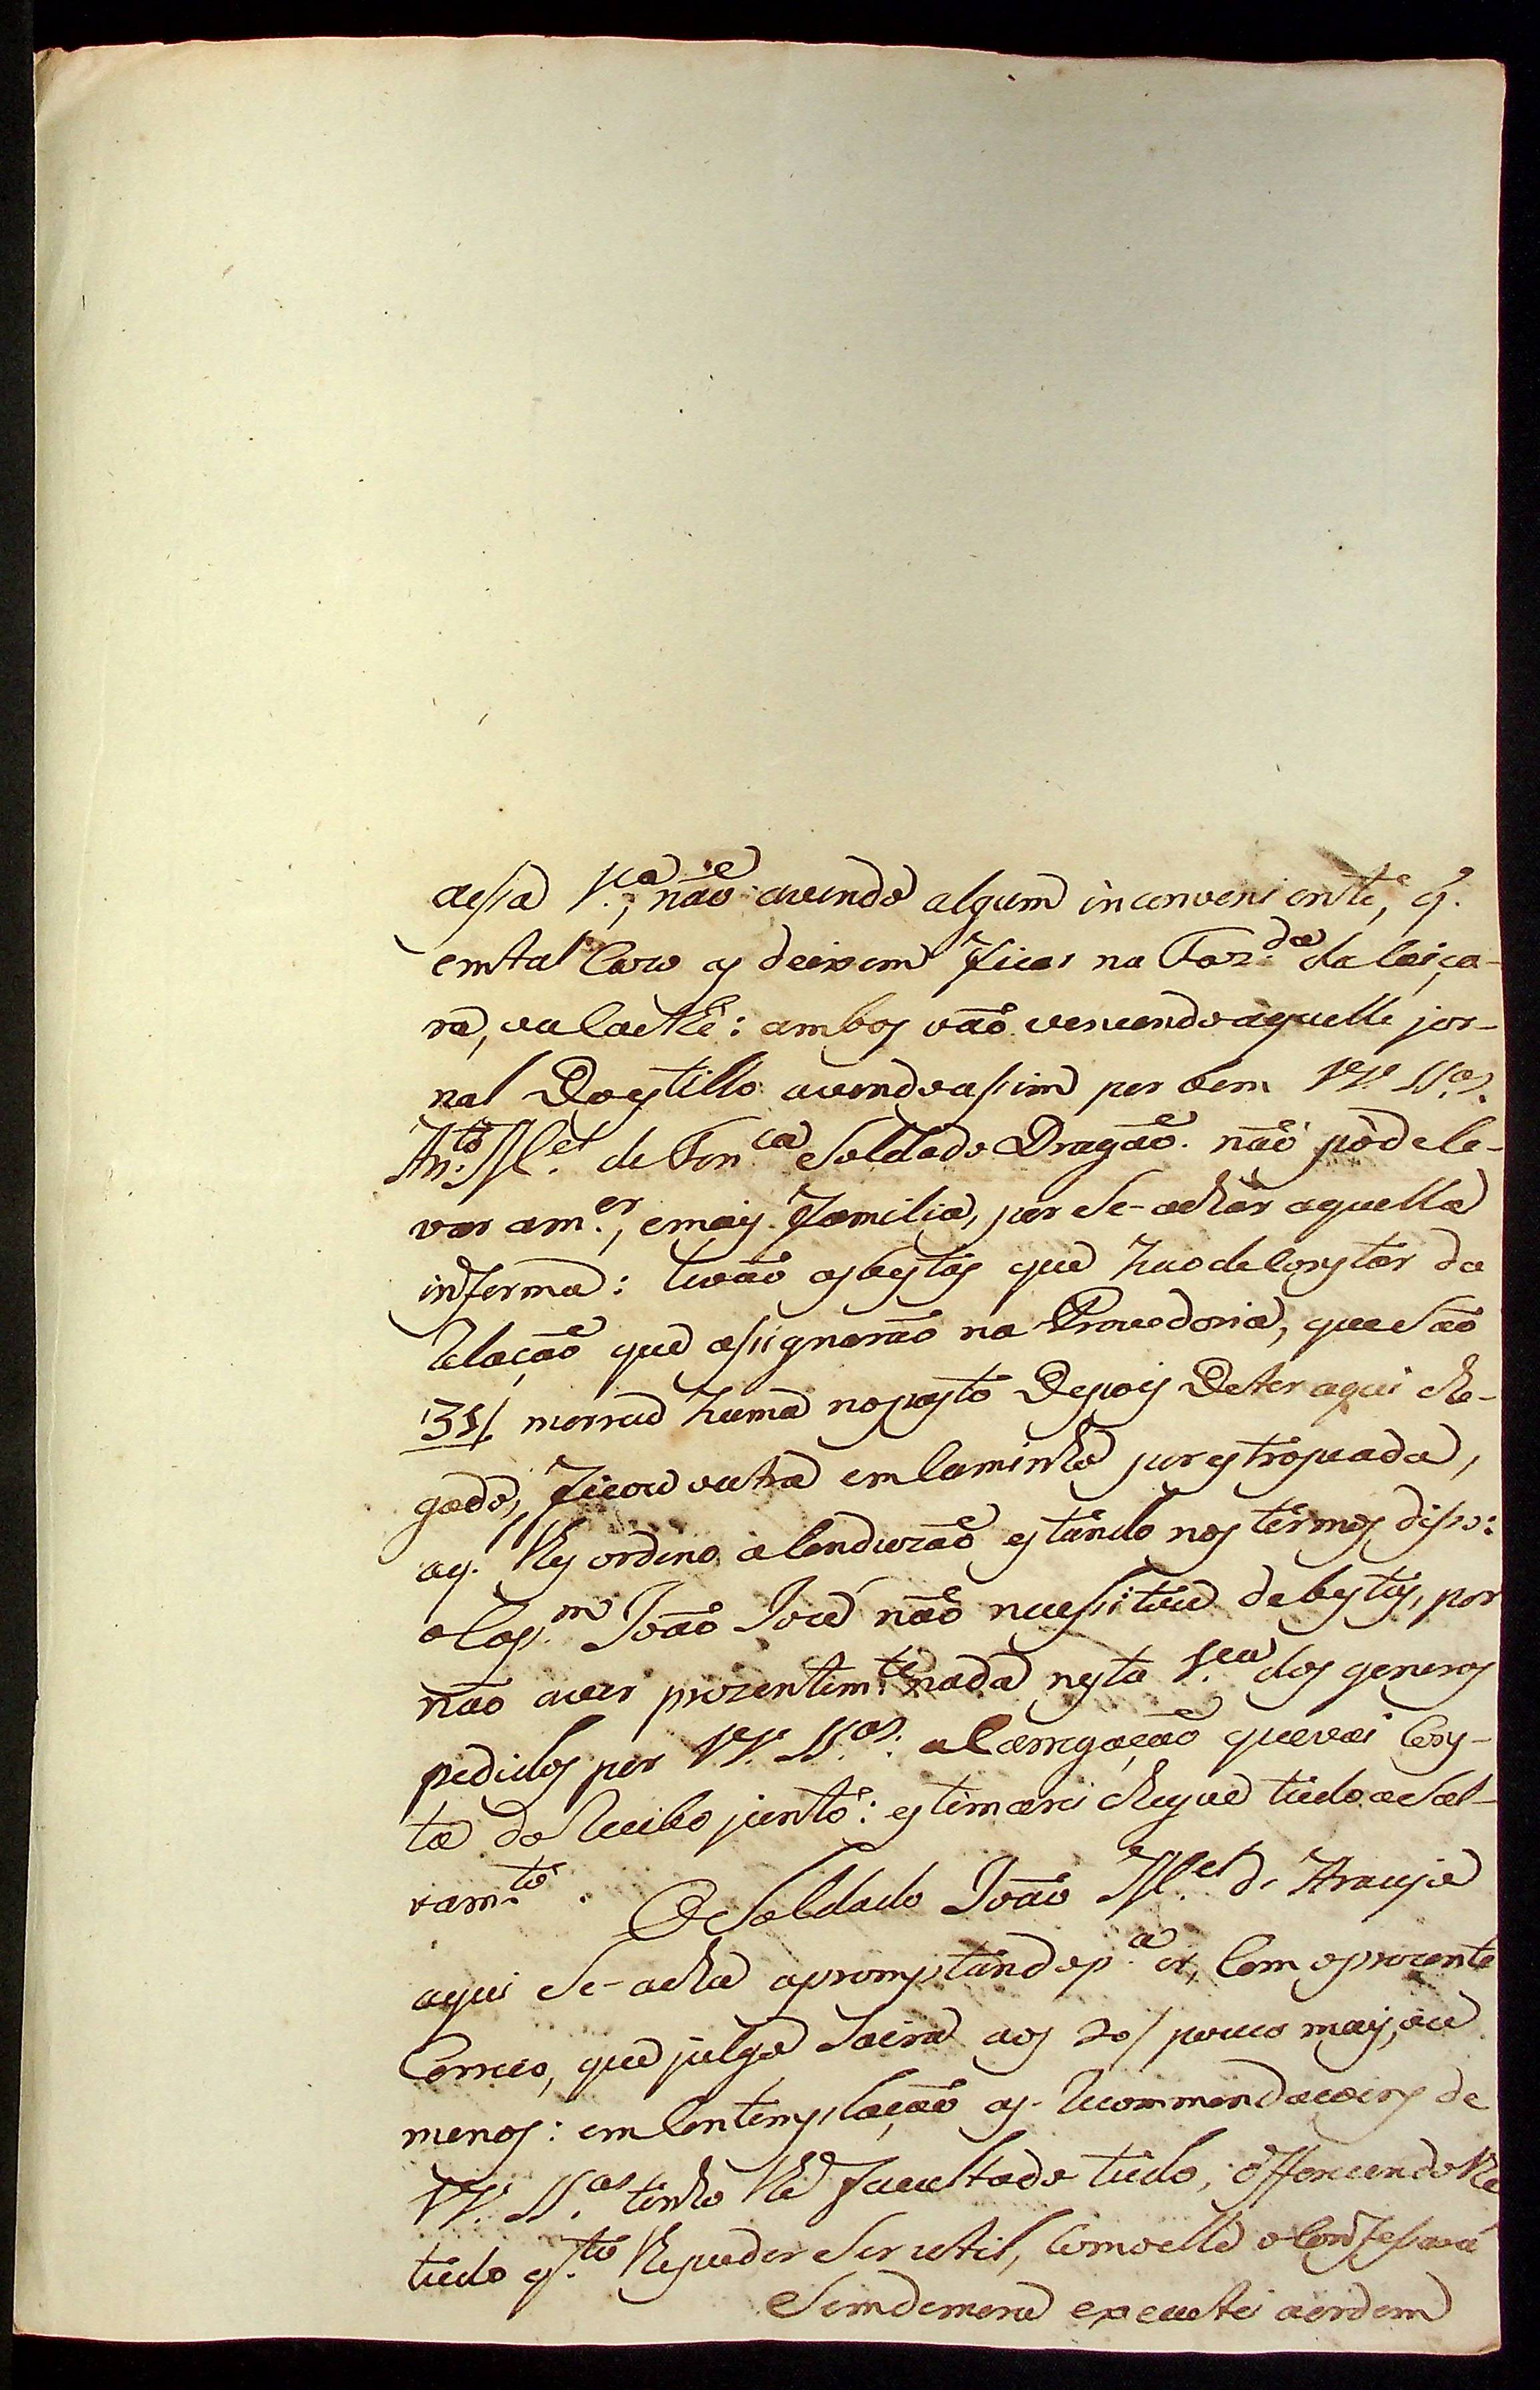 dessa V.ca, não avendo algum inconveniente, q̃.
emtal Cazo os deixem ficar na Faz.da da Caiça-
ra, ou Caethé: ambos vão vencendo aquelle jor-
nal Do estillo avendo assim por bem VV. SS.as.
An.to M.el de Fon.ca Soldado Dragaõ. naõ pòde le-
var am.er, emais familia, por Se-achar aquella
inferma: Levão asbestas que hao de Constar da
Relaçaõ que asignaraõ na Provedoria, que Saõ
31/ morreu huma nopasto Depois Deter aqui che-
gado, ficou outra emCaminho por estropeada,
aq. lhes ordeno a Conduzaõ estando nos termos disso:
o Cap.m Joaõ Jozé naõ necessitou de bestas, por
não aver prezentem.te nada nesta V.ca dos generos
pedidos por VV. SS.as: a Carregaçaõ que vai Cons-
ta do Recibo junto: estimarei chegue tudo a Sal-
vam.to. O Soldado Joaõ M.el de Araujo
aqui Se-acha apromptando p.a ir, Com o prezente
Correio, que julgo Sairá aos 20/ pouco mais, ou
menos: em Contemplaçaõ as Recommendacoens de
VV. SS.as tenho lhe facultado tudo, offerecendo lhe
tudo q.to lhe puder Ser util, Como elle o Confessará
Sem demora executei a ordem